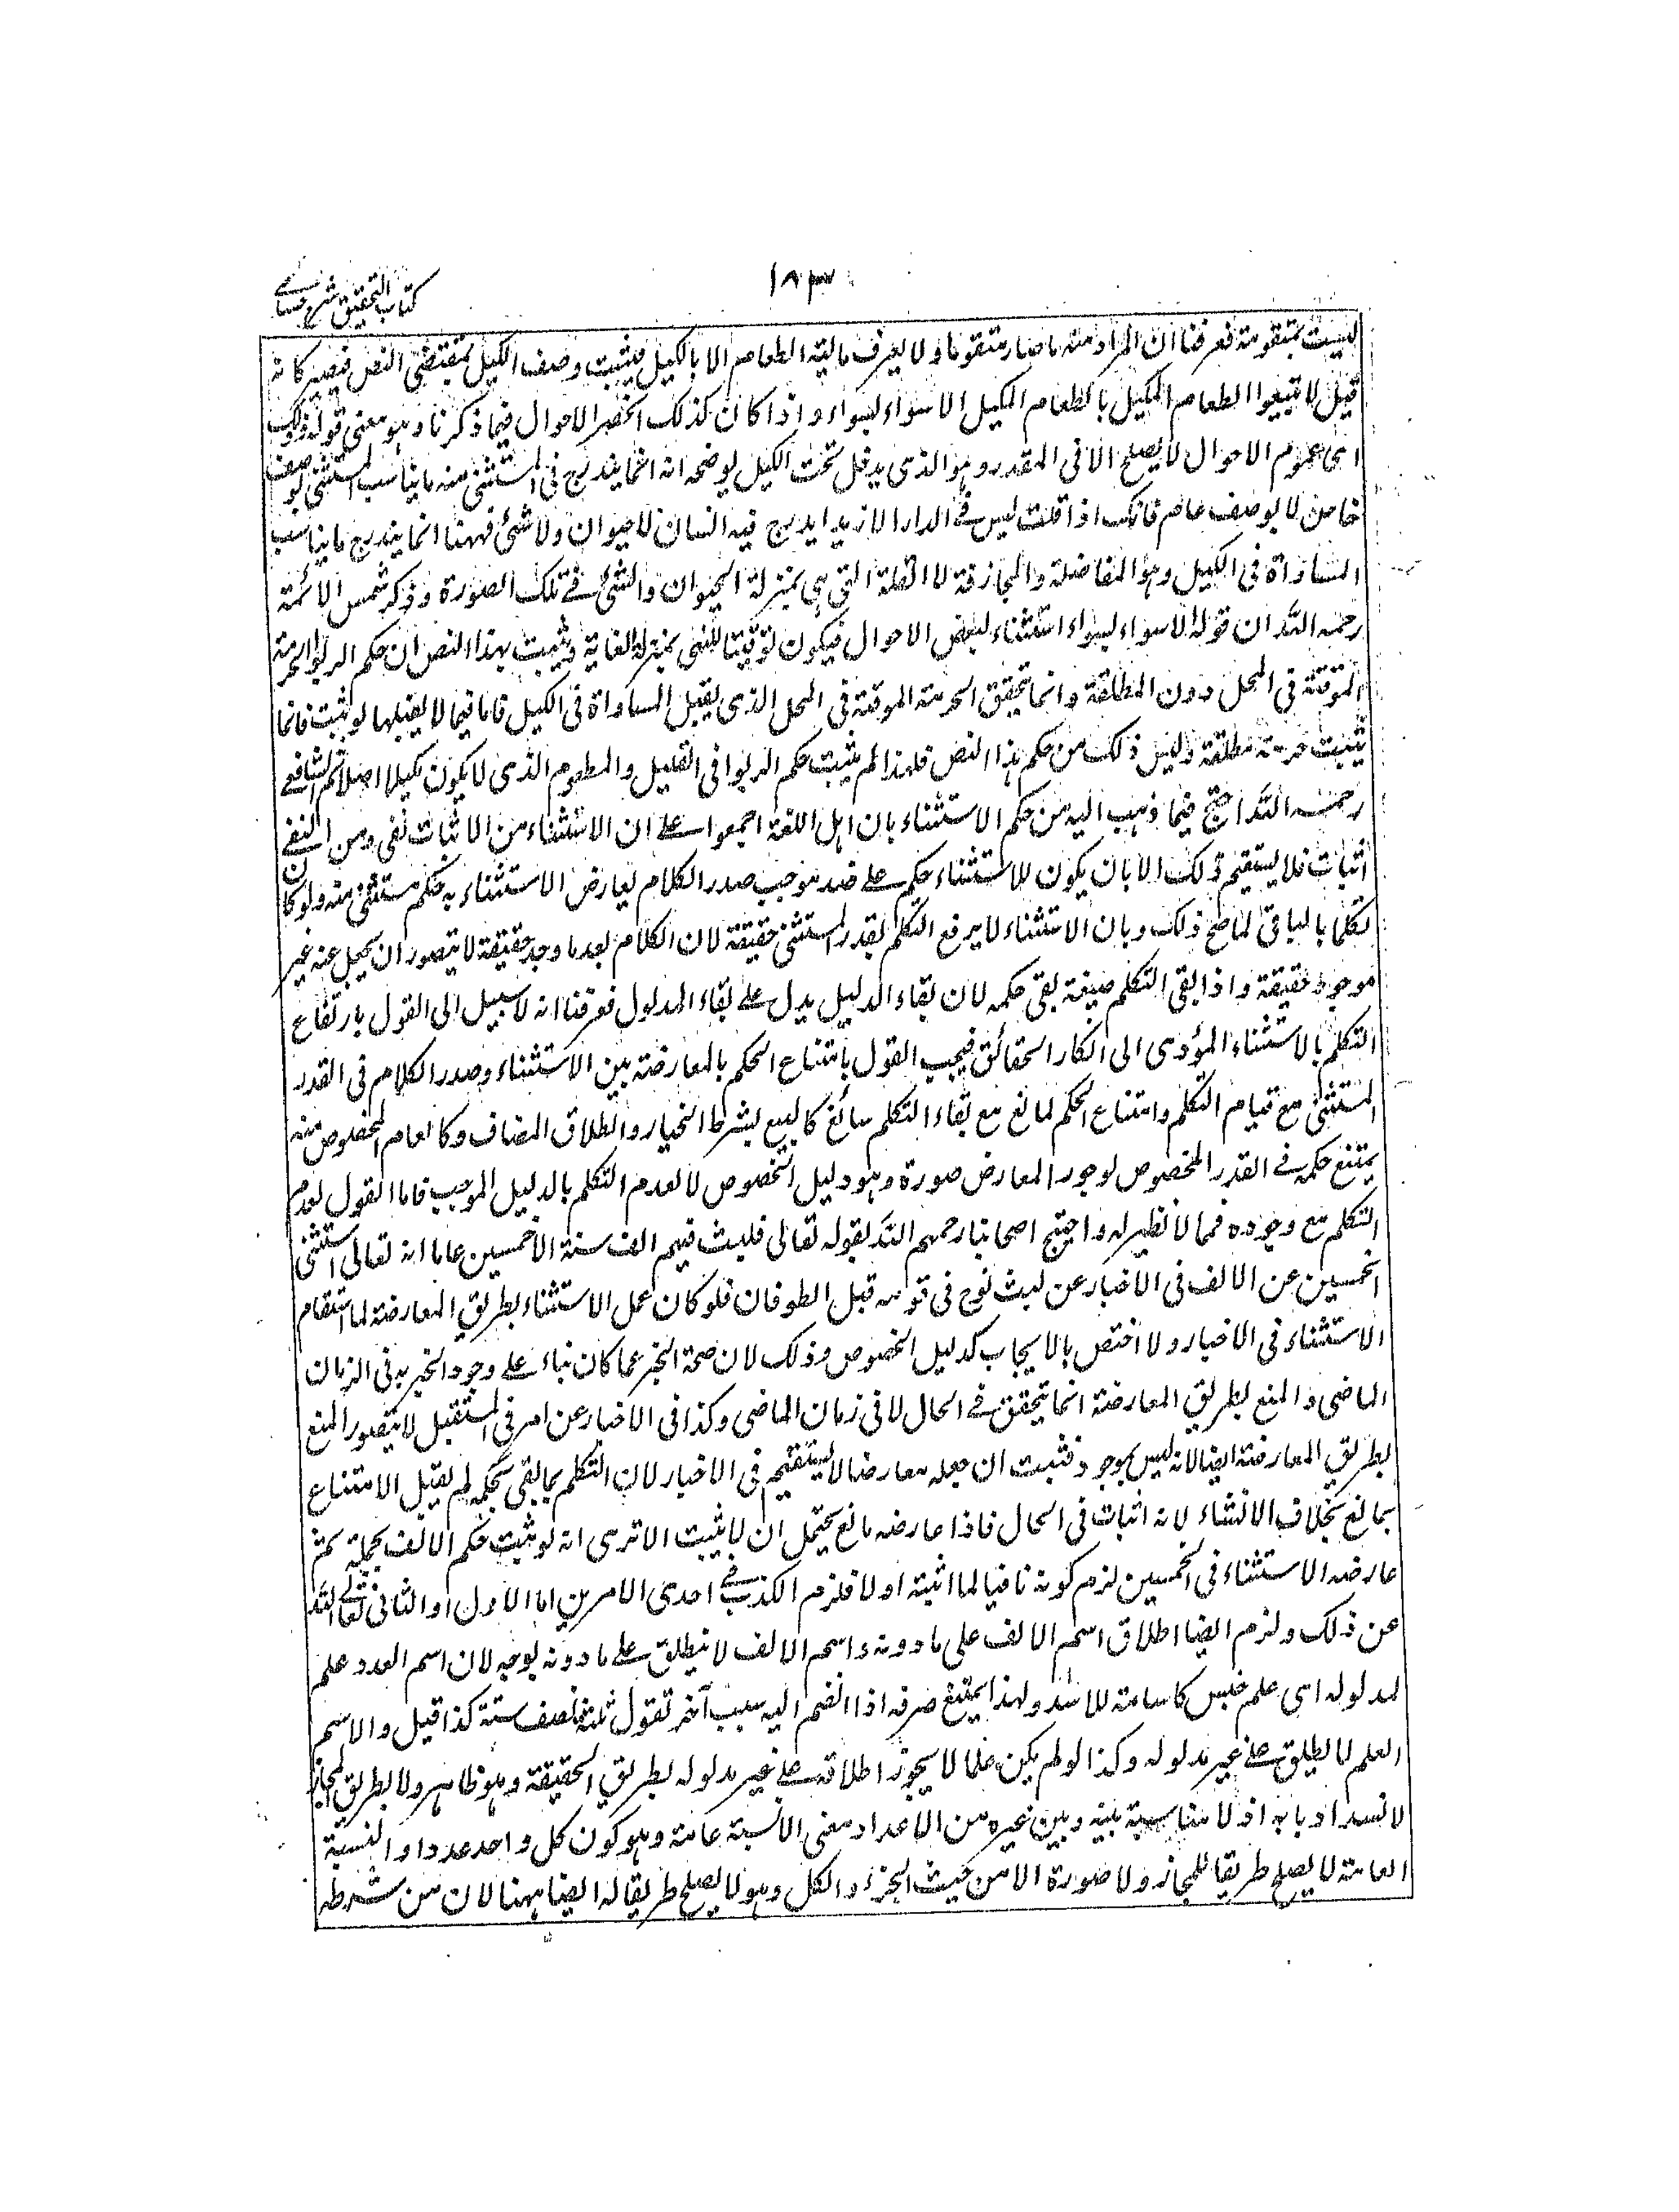 ١٨٣
كتاب التحقيق شرح حسامے
ليست بمتقومة فعرفنا ان المراد منه ما صار متقوما ولا يعرف مالية الطعام الا بالكيل فيثبت وصف الكيل بمقتضى النص فيصير كانه
قيل لا تبيعوا الطعام المكيل بالطعام المكيل الا سواء بسواء واذا كان كذلك انحصر الاحوال فيما ذكرنا وهو معنى قوله وذلك
اى عموم الاحوال لا يصلح الا فى المقدر وهو الذى يدخل تحت الكيل يوضحه انه انما يندرج فى المستثنى منه ما يناسب المستثنى بوصف
خاص لا بوصف عام فانك اذا قلت ليس فى الدار الا زيد يدرج فيه انسان لا حيوان ولا شئ فههنا انما يندرج ما يناسب
المساواة فى الكيل وهو المفاضلة والمجازفة لا القلة التى هى بمنزلة الحيوان والشئ فى تلك الصورة وذكر شمس الائمة
رحمه الله ان قوله الا سواء بسواء استثناء لبعض الاحوال فيكون توقيتا للنهى بمنزلة الغاية ويثبت بهذا النص ان حكم الربوا الحرمة
الموقتة فى المحل دون المطلقة وانما تتحقق الحرمة الموقتة فى المحل الذى يقبل المساواة فى الكيل فاما فيما لا يقبلها لو ثبت فانما
يثبت حرمة مطلقة وليس ذلك من حكم هذا النص فلهذا لم يثبت حكم الربوا فى القليل والمطعوم الذى لا يكون مكيلا اصلا ثم الشافعے
رحمه الله احتج فيما ذهب اليه من حكم الاستثناء بان اهل اللغة اجمعوا على ان الاستثناء من الاثبات نفى ومن النفے
اثبات فلا يستقيم ذلك الا بان يكون للاستثناء حكم على ضد موجب صدر الكلام يعارض الاستثناء به حكم مستثنى منه ولو كان
تكلما بالباقى لما صح ذلك وبان الاستثناء لا يرفع التكلم بقدر المستثنى حقيقة لان الكلام بعد ما وجد حقيقة لا يتصور ان يجعل عنه غير
موجود حقيقة واذا بقى التكلم صيغة بقى حكمه لان بقاء الدليل يدل على بقاء المدلول فعرفنا انه لا سبيل الى القول بارتفاع
التكلم بالاستثناء المؤدى الى انكار الحقائق فيجب القول بامتناع الحكم بالمعارضة بين الاستثناء وصدر الكلام فى القدر
المستثنى مع قيام التكلم وامتناع الحكم لمانع مع بقاء التكلم سائغ كالبيع بشرط الخيار والطلاق المضاف وكالعام المخصوص منه
يمتنع حكمه فى القدر المخصوص لوجود المعارض صورة وهو دليل الخصوص لا لعدم التكلم بالدليل الموجب فاما القول بعدم
التكلم مع وجوده فمما لا نظير له واحتج اصحابنا رحمهم الله بقوله تعالى فلبث فيهم الف سنة الا خمسين عاما انه تعالى استثنى
الخمسين عن الالف فى الاخبار عن لبث نوح فى قومه قبل الطوفان فلو كان عمل الاستثناء بطريق المعارضة لما استقام
الاستثناء فى الاخبار ولا اختص بالايجاب كدليل الخصوص وذلك لان صحة الخبر عما كان بناء على وجود المخبر به فى الزمان
الماضى والمنع بطريق المعارضة انما يتحقق فى الحال لا فى زمان الماضى وكذا فى الاخبار عن امر فى المستقبل لا يتصور المنع
بطريق المعارضة ايضا لانه ليس بموجود فثبت ان جعله معارضا لا يستقيم فى الاخبار لان التكلم بما بقى بحكمه لم يقبل الامتناع
بمانع بخلاف الانشاء لانه اثبات فى الحال فاذا عارضه مانع يحتمل ان لا يثبت الا ترى انه لو ثبت حكم الالف بجملته ثم
عارضه الاستثناء فى الخمسين لزم كونه نافيا لما اثبته اولا فلزم الكذب فى احدى الامرين اما الاول او الثانى تعالى الله
عن ذلك ولزم ايضا اطلاق اسم الالف على ما دونه واسم الالف لا ينطلق على ما دونه بوجه لان اسم العدد علم
لمدلوله اى علم جنس كاسامة للاسد ولهذا يمتنع صرفه اذا انضم اليه سبب آخر تقول ثلثة نصف ستة كذا قيل والاسم
العلم لا يطلق على غير مدلوله وكذا لو لم يكن علما لا يجوز اطلاقه على غير مدلوله بطريق الحقيقة وهو ظاهر ولا بطريق المجاز
لانسداد بابه اذ لا مناسبة بينه وبين غيره من الاعداد معنى الا نسبة عامة وهو كون كل واحد عددا والنسبة
العامة لا يصلح طريقا للمجاز ولا صورة الا من حيث الجزء والكل وهو لا يصلح طريقا له ايضا ههنا لان من شرطه